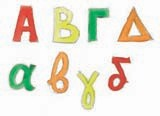 Α Β Γ Δ
α β γ δ